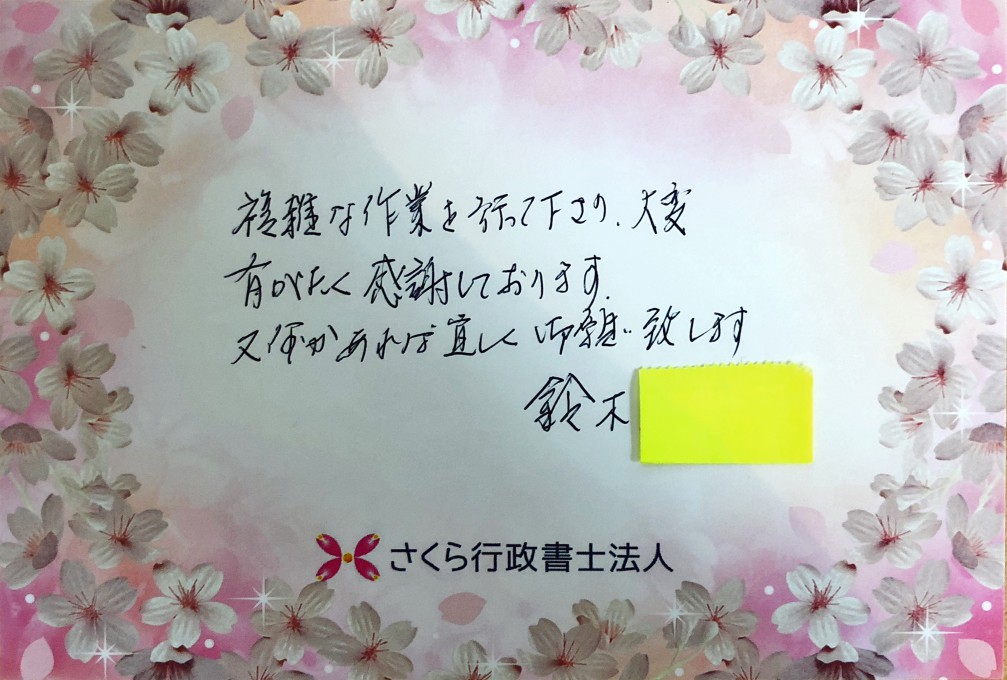 複雑な作業を行って下さり、大変
有がたく感謝しております。
又何かあれば宜しく御願い致します
鈴木
さくら行政書士法人